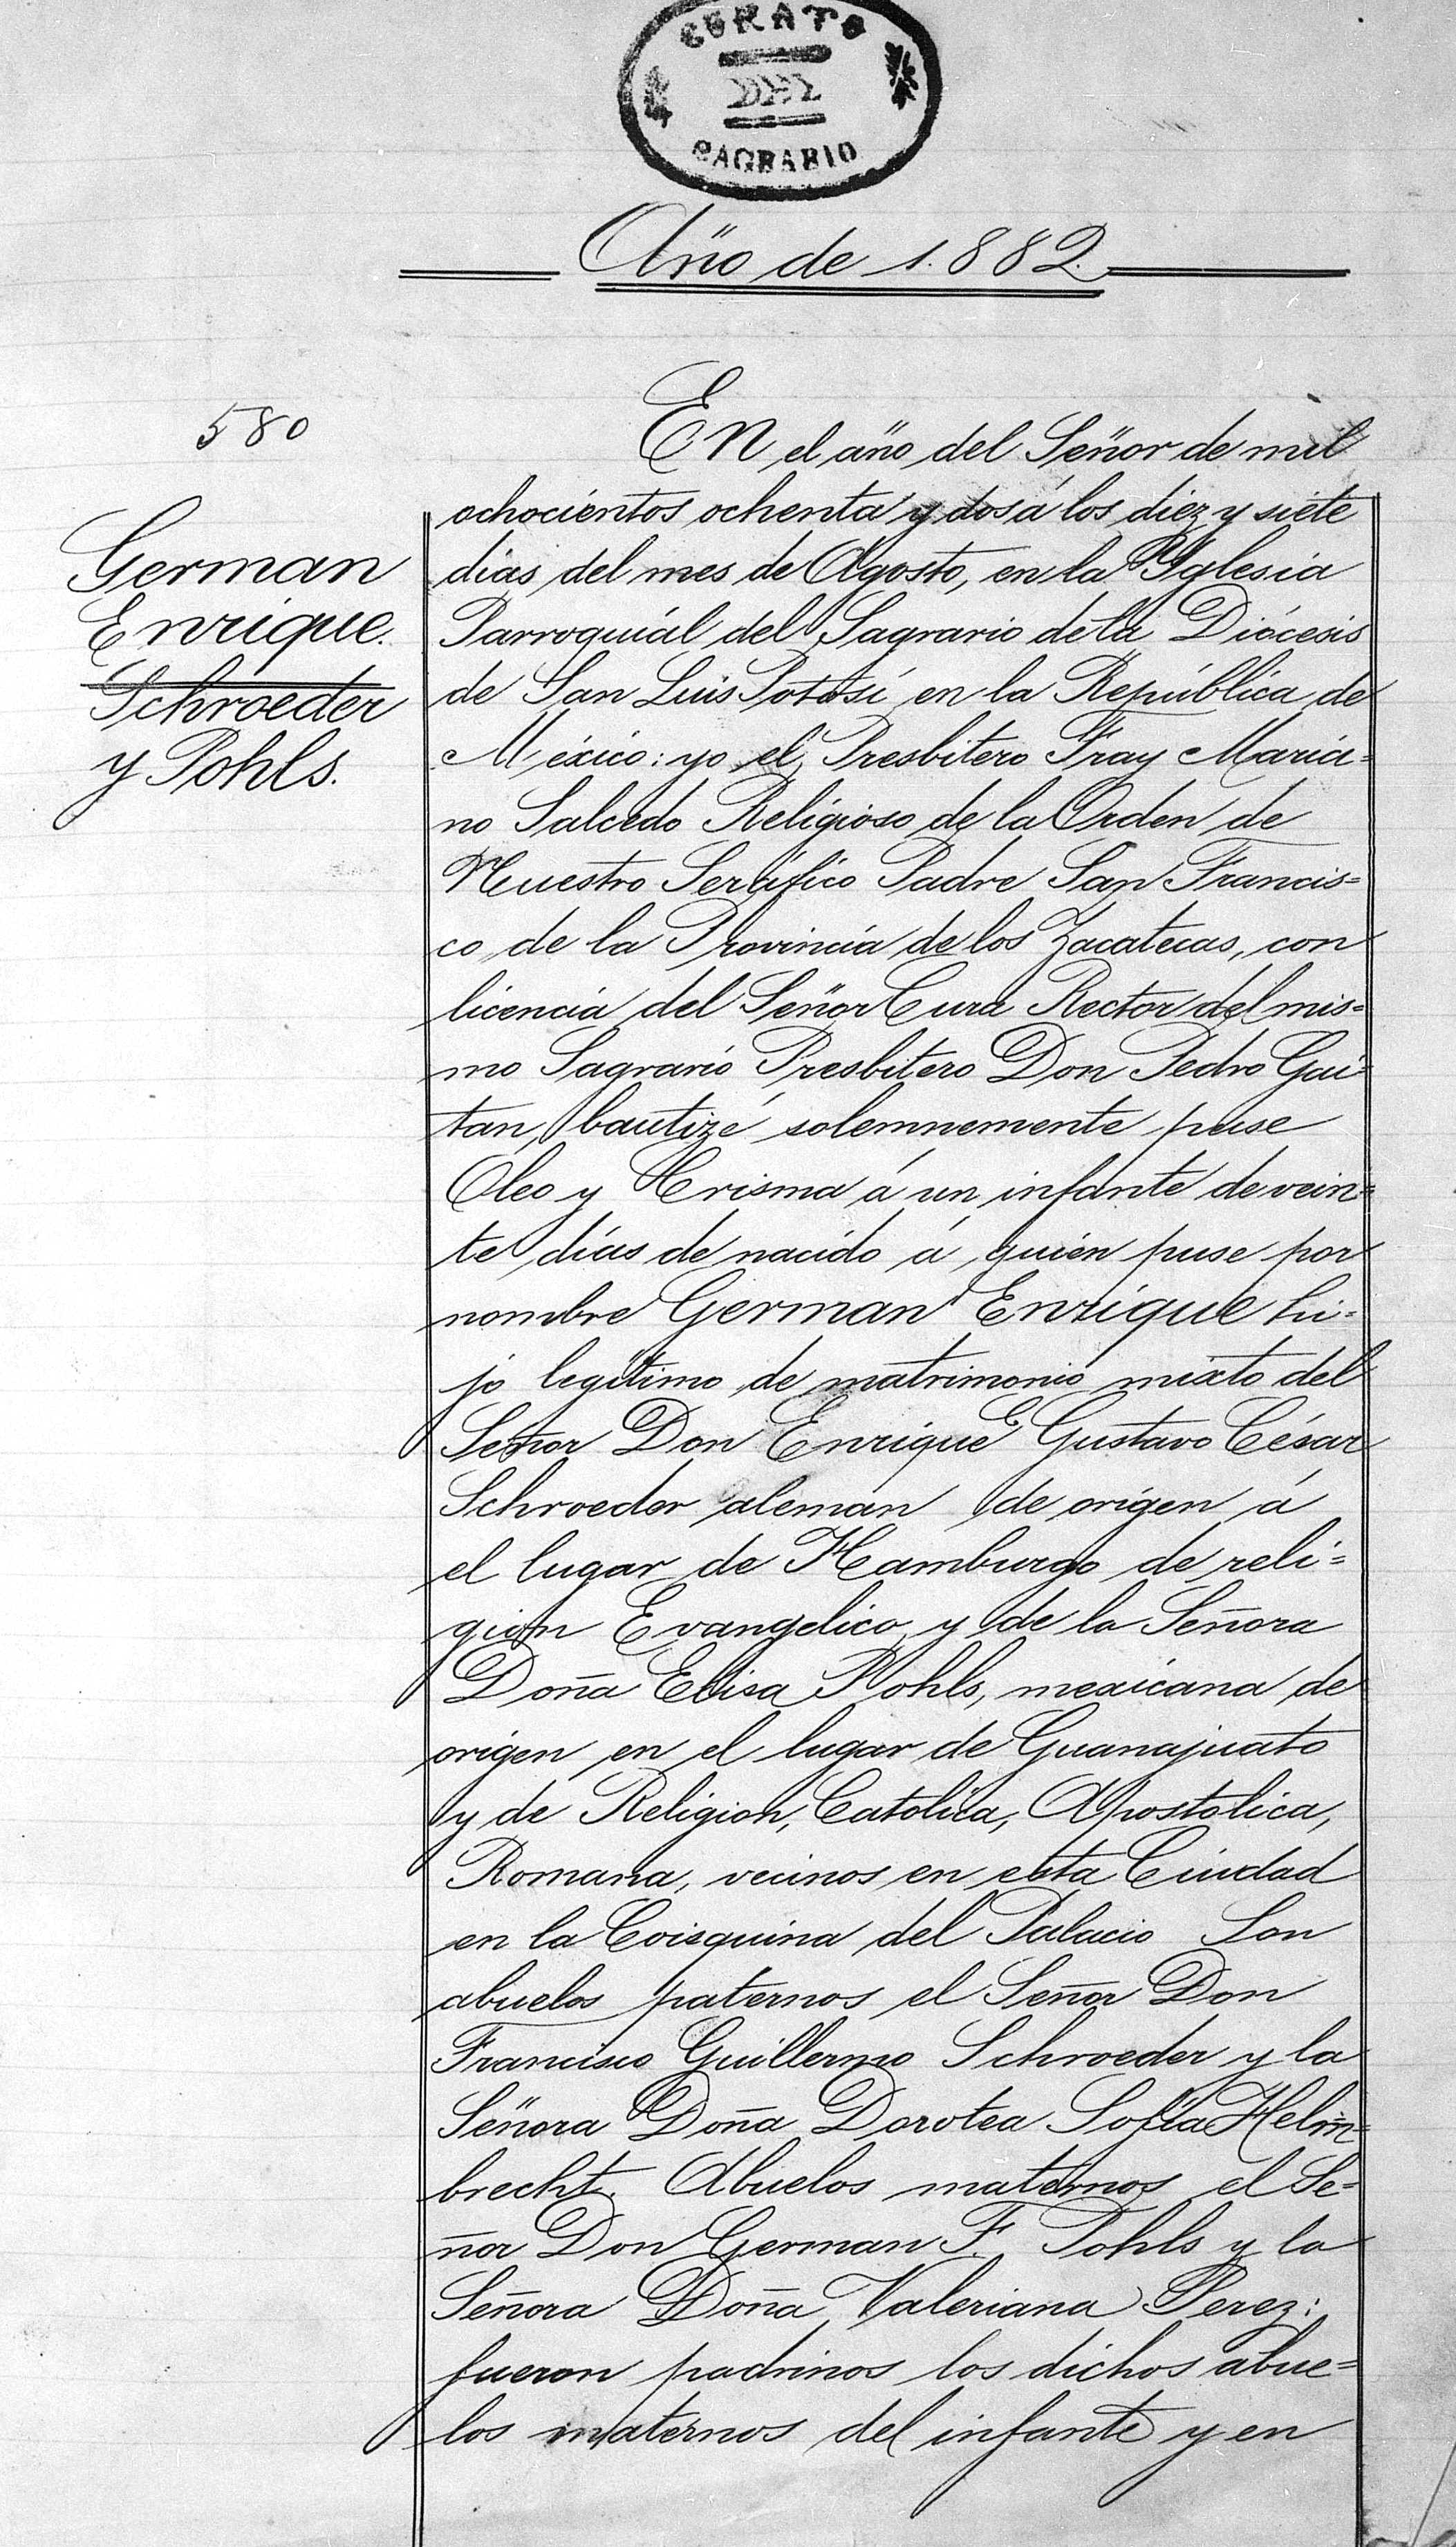 CURATO
DEL
SAGRARIO
Año de 1.882.
580
German
Enrique.
Schroeder
y Pohls.
En el año del Señor de mil
ochocientos ochenta y dos á los diez y siete
dias del mes de Agosto, en la Yglesia
Parroquial del Sagrario de la Diócesis
de San Luis Potosí en la República de
México: yo el Presbitero Fray Maria=
no Salcedo Religioso de la Orden de
Nuestro Seráfico Padre San Francis=
co de la Provincia de los Zacatecas, con
licencia del Señor Cura Rector del mis=
mo Sagrario Presbitero Don Pedro Gui=
tan, bautizé solemnemente puse
Oleo y Crisma á un infante de vein=
te dias de nacido á quien puse por
nombre German Enrique hi=
jo legítimo de matrimonio mixto del
Señor Don Enrique Gustavo César
Schroeder aleman de origen á
el lugar de Hamburgo de reli=
gion Evangelico y de la Señora
Doña Elisa Pohls, mexicana de
origen en el lugar de Guanajuato
y de Religion, Catolica, Apostolica,
Romana, vecinos en esta Ciudad
en la Coisquina del Palacio Son
abuelos paternos el Señor Don
Francisco Guillermo Schroeder y la
Señora Doña Dorotea Sofia Helm=
brecht. Abuelos maternos el Se=
ñor Don German F. Pohls y la
Señora Doña Valeriana Perez:
fueron padrinos los dichos abue=
los maternos del infante y en